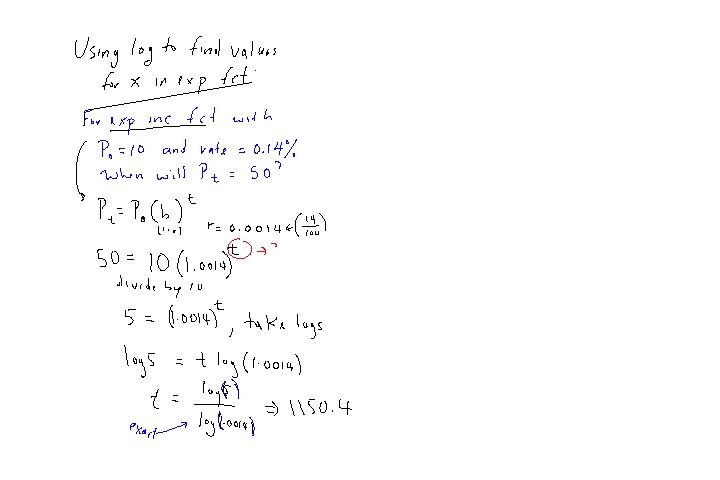 Using log to find values
for x in exp fct.
For exp inc fct with
P₀=10 and rate = 0.14%
when will Pₜ = 50?
Pₜ = P₀(b)ᵗ
(1+r) r = 0.0014 ← (14/100)
50 = 10(1.0014)ᵗ → ?
divide by 10
5 = (1.0014)ᵗ, take logs
log5 = t log(1.0014)
t = log(5)/log(1.0014) ⇒ 1150.4
exact →